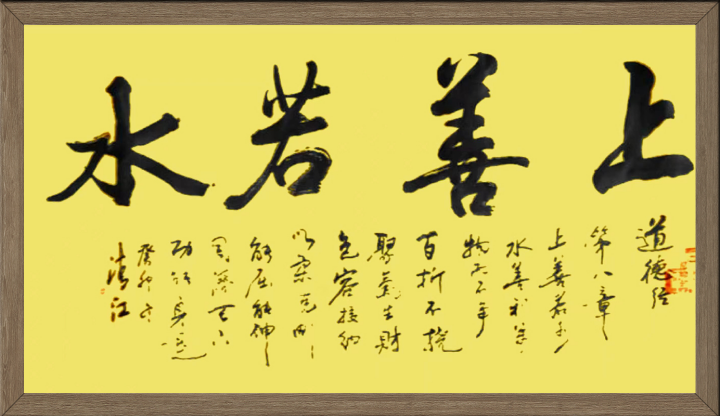 上善若水
道德经
第八章
上善若水
水善利万
物而不争
百折不挠
聚氣生財
包容接纳
以柔克刚
能屈能伸
天下
癸卯
清江